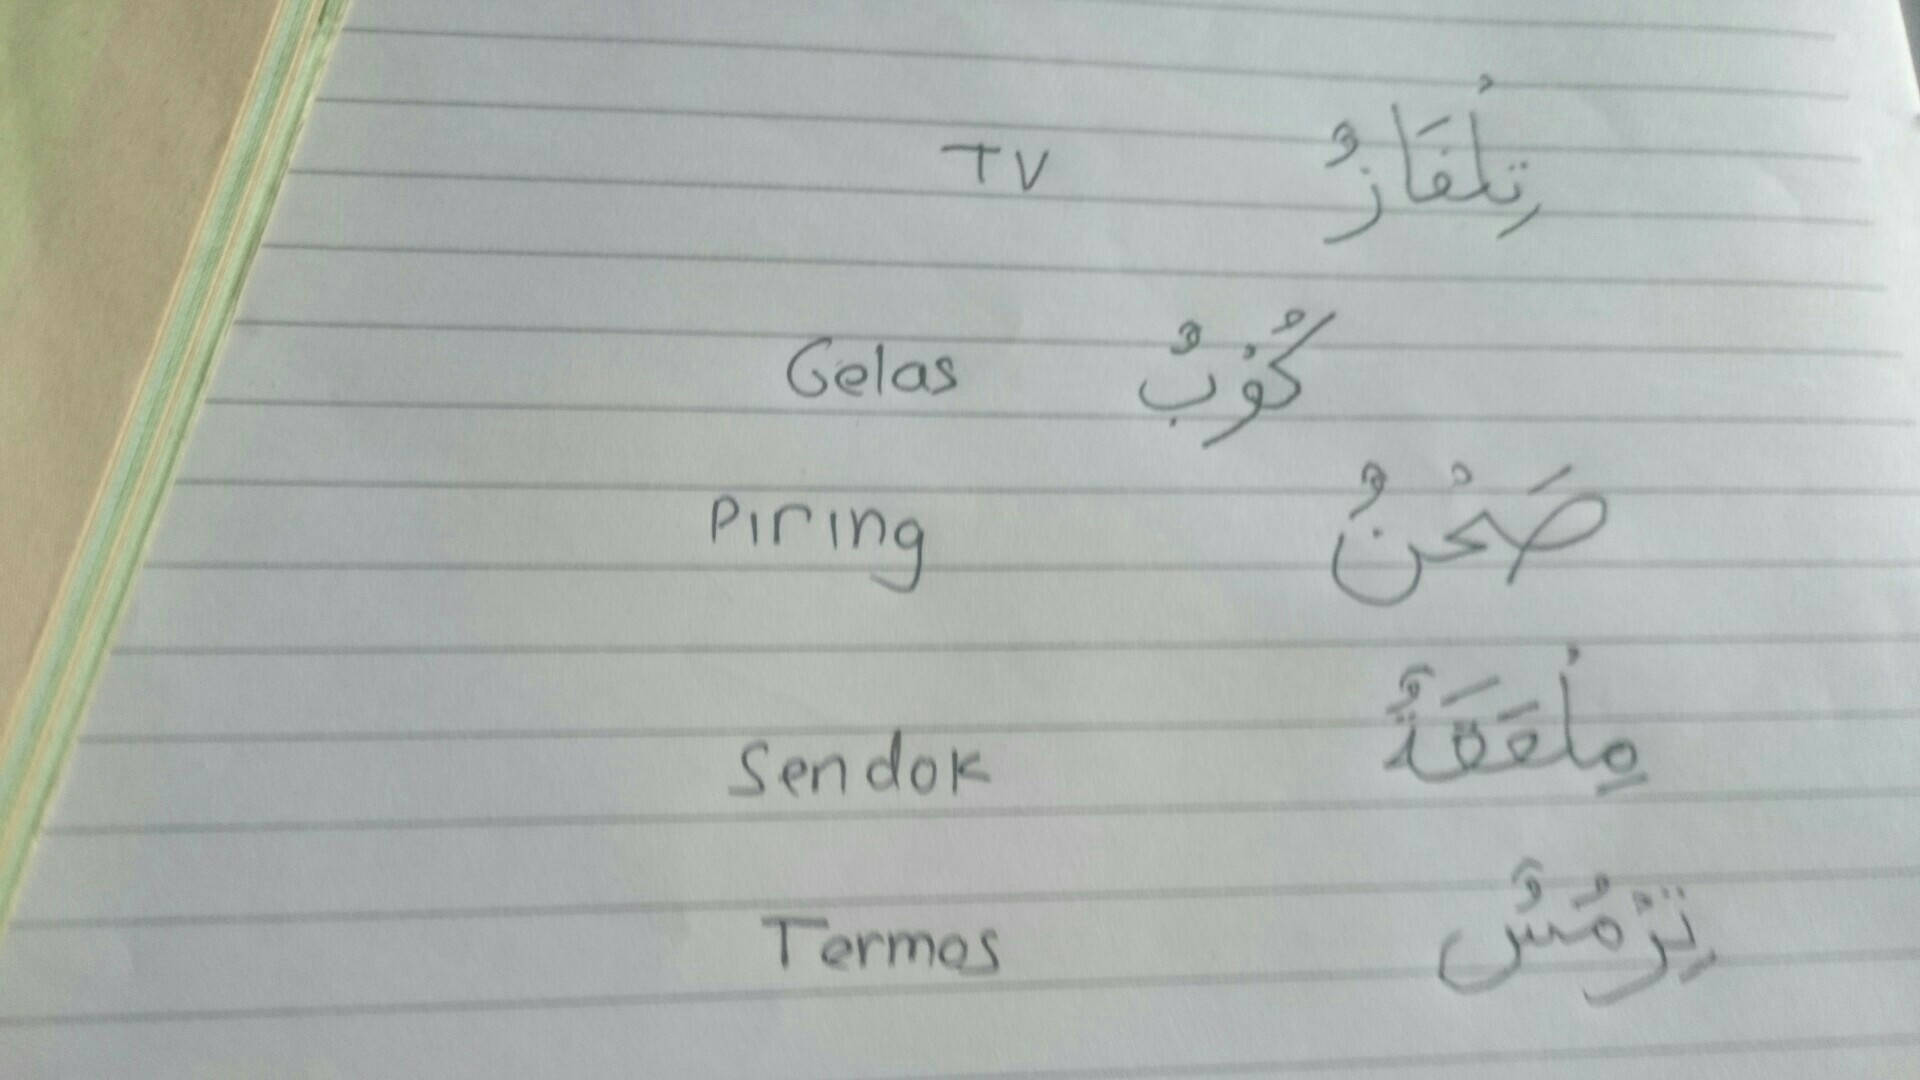 TV تِلْفَازٌ
Gelas كُوْبٌ
Piring صَحْنٌ
Sendok مِلْعَقَةٌ
Termos تِرْمُسٌ